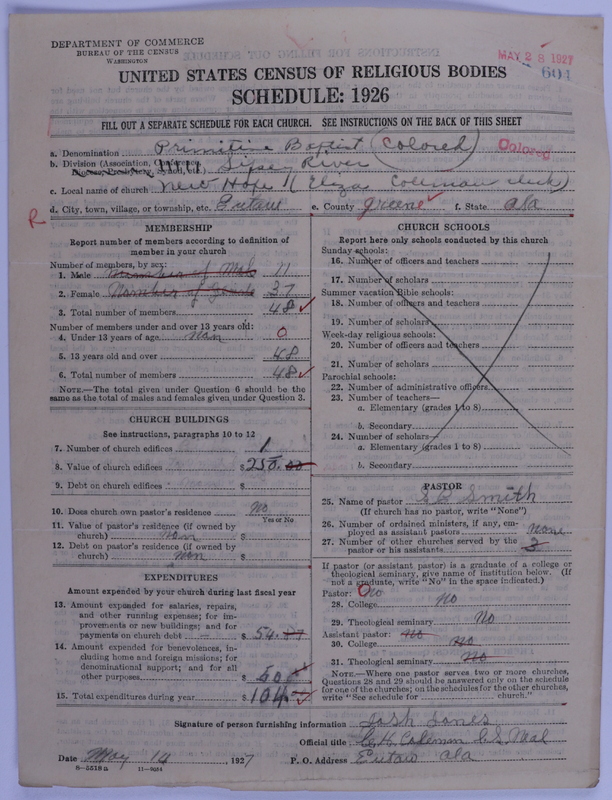 DEPARTMENT OF COMMERCE
BUREAU OF THE CENSUS
WASHINGTON
MAY 28 1927
601
UNITED STATES CENSUS OF RELIGIOUS BODIES
SCHEDULE: 1926
FILL OUT A SEPARATE SCHEDULE FOR EACH CHURCH. SEE INSTRUCTIONS ON THE BACK OF THIS SHEET
a. Denomination Primitive Baptist (Colored) Colored
b. Division (Association, Conference, Diocese, Presbytery, Synod, etc.) Sipsey River
c. Local name of church New Hope (Eliza Coleman
d. City, town, village, or township, etc. Eutaw e. County Greene f. State Ala
R
MEMBERSHIP
Report number of members according to definition of member in your church
Number of members, by sex:
1. Male Number of Mal 11
2. Female Number of 37
3. Total number of members 48
Number of members under and over 13 years old:
4. Under 13 years of age non 0
5. 13 years old and over 48
6. Total number of members 48
NOTE.—The total given under Question 6 should be the same as the total of males and females given under Question 3.
CHURCH BUILDINGS
See instructions, paragraphs 10 to 12
7. Number of church edifices 1
8. Value of church edifices $250.00
9. Debt on church edifices $
10. Does church own pastor's residence No
Yes or No
11. Value of pastor's residence (if owned by church) non $
12. Debt on pastor's residence (if owned by church) non $
EXPENDITURES
Amount expended by your church during last fiscal year
13. Amount expended for salaries, repairs, and other running expenses; for improvements or new buildings; and for payments on church debt $ 54.
14. Amount expended for benevolences, including home and foreign missions; for denominational support; and for all other purposes $
15. Total expenditures during year $ 104.
CHURCH SCHOOLS
Report here only schools conducted by this church
Sunday schools:
16. Number of officers and teachers
17. Number of scholars
Summer vacation Bible schools:
18. Number of officers and teachers
19. Number of scholars
Week-day religious schools:
20. Number of officers and teachers
21. Number of scholars
Parochial schools:
22. Number of administrative officers
23. Number of teachers—
a. Elementary (grades 1 to 8)
b. Secondary
24. Number of scholars—
a. Elementary (grades 1 to 8)
b. Secondary
PASTOR
25. Name of pastor Smith
(If church has no pastor, write "None")
26. Number of ordained ministers, if any, employed as assistant pastors none
27. Number of other churches served by the pastor or his assistants 3
If pastor (or assistant pastor) is a graduate of a college or theological seminary, give name of institution below. (If not a graduate, write "No" in the space indicated.)
Pastor: No
28. College No
29. Theological seminary No
Assistant pastor: No
30. College No
31. Theological seminary No
NOTE.—Where one pastor serves two or more churches, Questions 28 and 29 should be answered only on the schedule for one of the churches; on the schedules for the other churches, write "See schedule for church."
Signature of person furnishing information Jones
Official title Coleman
Date May 14 1927 P. O. Address Eutaw Ala
8—5518a 11—9054